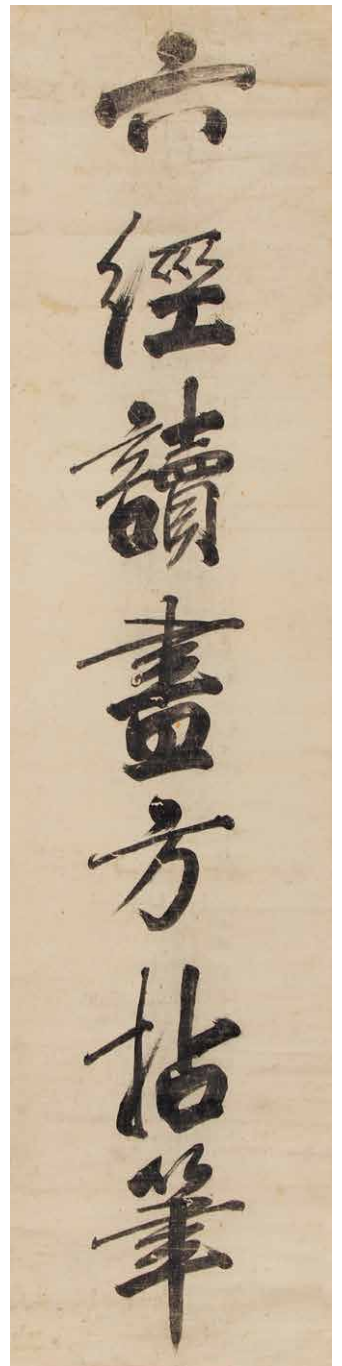 六經讀盡方拈筆